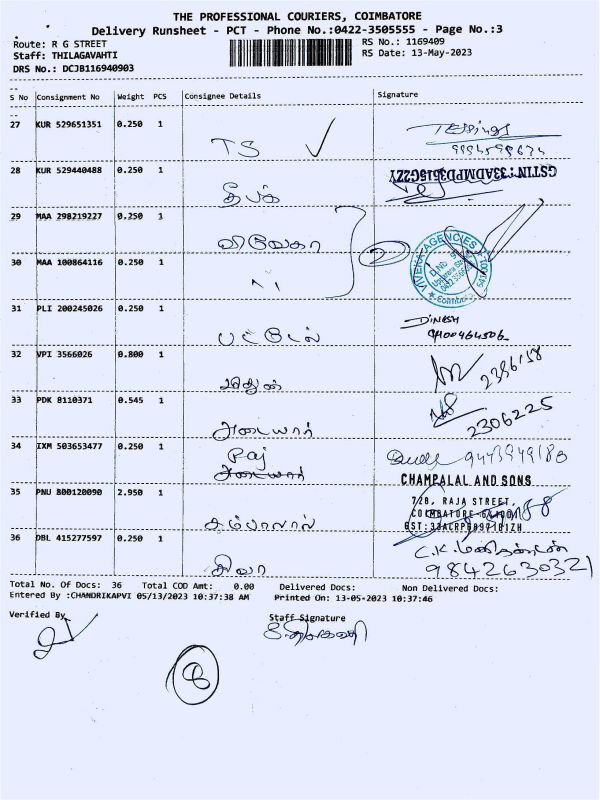 THE PROFESSIONAL COURIERS, COIMBATORE
Delivery Runsheet - PCT - Phone No.:0422-3505555 - Page No.:3
Route: R G STREET RS No.: 1169409
Staff: THILAGAVAHTI RS Date: 13-May-2023
DRS No.: DCJB116940903
S No Consignment No Weight PCS Consignee Details Signature
27 KUR 529651351 0.250 1 TS
28 KUR 529440488 0.250 1 தீபக் GSTIN:33ADMPD3615G2ZY
29 MAA 298219227 0.250 1 விவேகா VIVEKA AGENCIES
30 MAA 100864116 0.250 1 "
31 PLI 200245026 0.250 1 பட்டேல் DINESH
32 VPI 3566026 0.800 1 2396158
33 PDK 8110371 0.545 1 அடையார் 2306225
34 IXM 503653477 0.250 1 Raj 9443949180
அடையார்
CHAMPALAL AND SONS
35 PNU 800120090 2.950 1 சம்பாலால் 728, RAJA STREET,
COIMBATORE
36 DBL 415277597 0.250 1 சிவா C.K. மணிகண்டன்
9842630321
Total No. Of Docs: 36 Total COD Amt: 0.00 Delivered Docs: Non Delivered Docs:
Entered By :CHANDRIKAPVI 05/13/2023 10:37:38 AM Printed On: 13-05-2023 10:37:46
Verified By Staff Signature
8